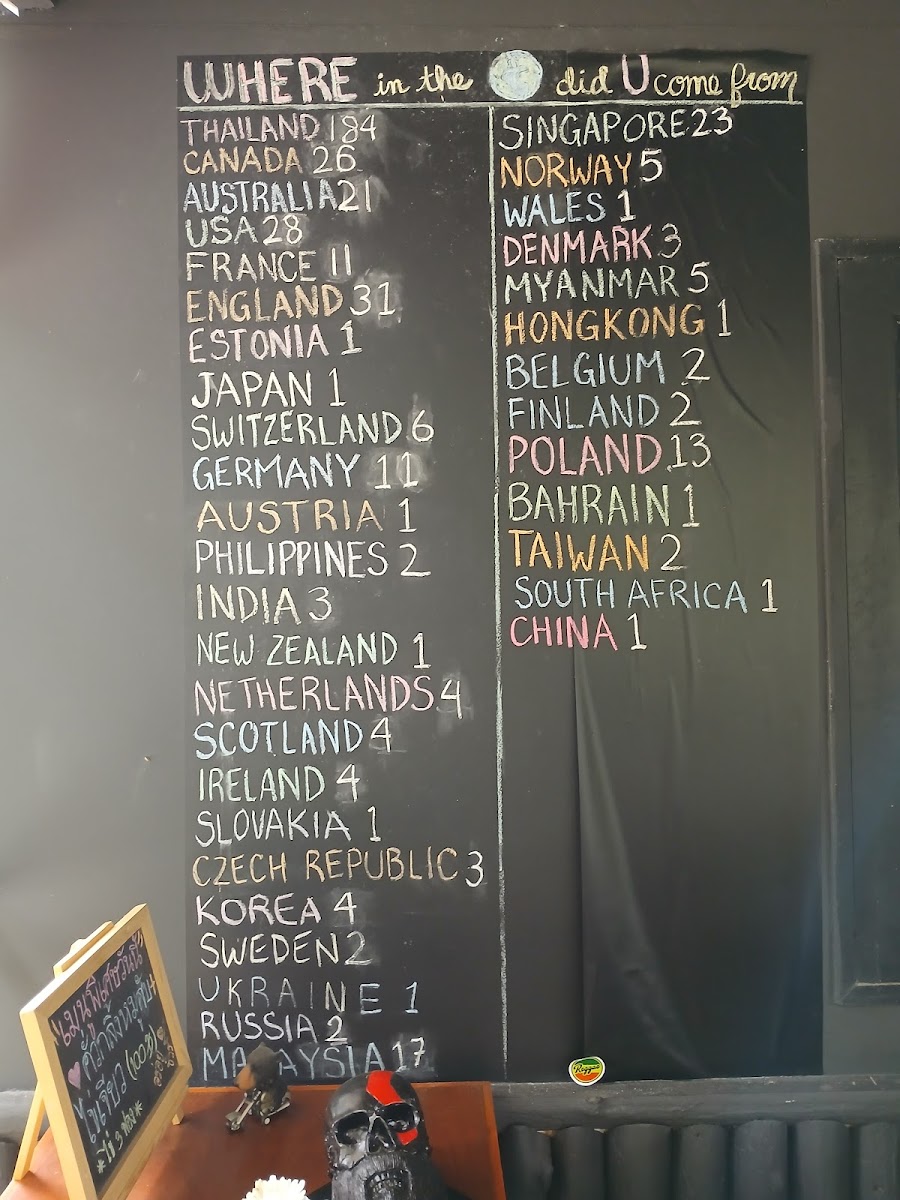 WHERE in the did U come from
THAILAND 184
CANADA 26
AUSTRALIA 21
USA 28
FRANCE 11
ENGLAND 31
ESTONIA 1
JAPAN 1
SWITZERLAND 6
GERMANY 11
AUSTRIA 1
PHILIPPINES 2
INDIA 3
NEW ZEALAND 1
NETHERLANDS 4
SCOTLAND 4
IRELAND 4
SLOVAKIA 1
CZECH REPUBLIC 3
KOREA 4
SWEDEN 2
UKRAINE 1
RUSSIA 2
MALAYSIA 17
SINGAPORE 23
NORWAY 5
WALES 1
DENMARK 3
MYANMAR 5
HONGKONG 1
BELGIUM 2
FINLAND 2
POLAND 13
BAHRAIN 1
TAIWAN 2
SOUTH AFRICA 1
CHINA 1
เมนูพิเศษวันนี้
ไข่เจียว (100฿)
Reggae